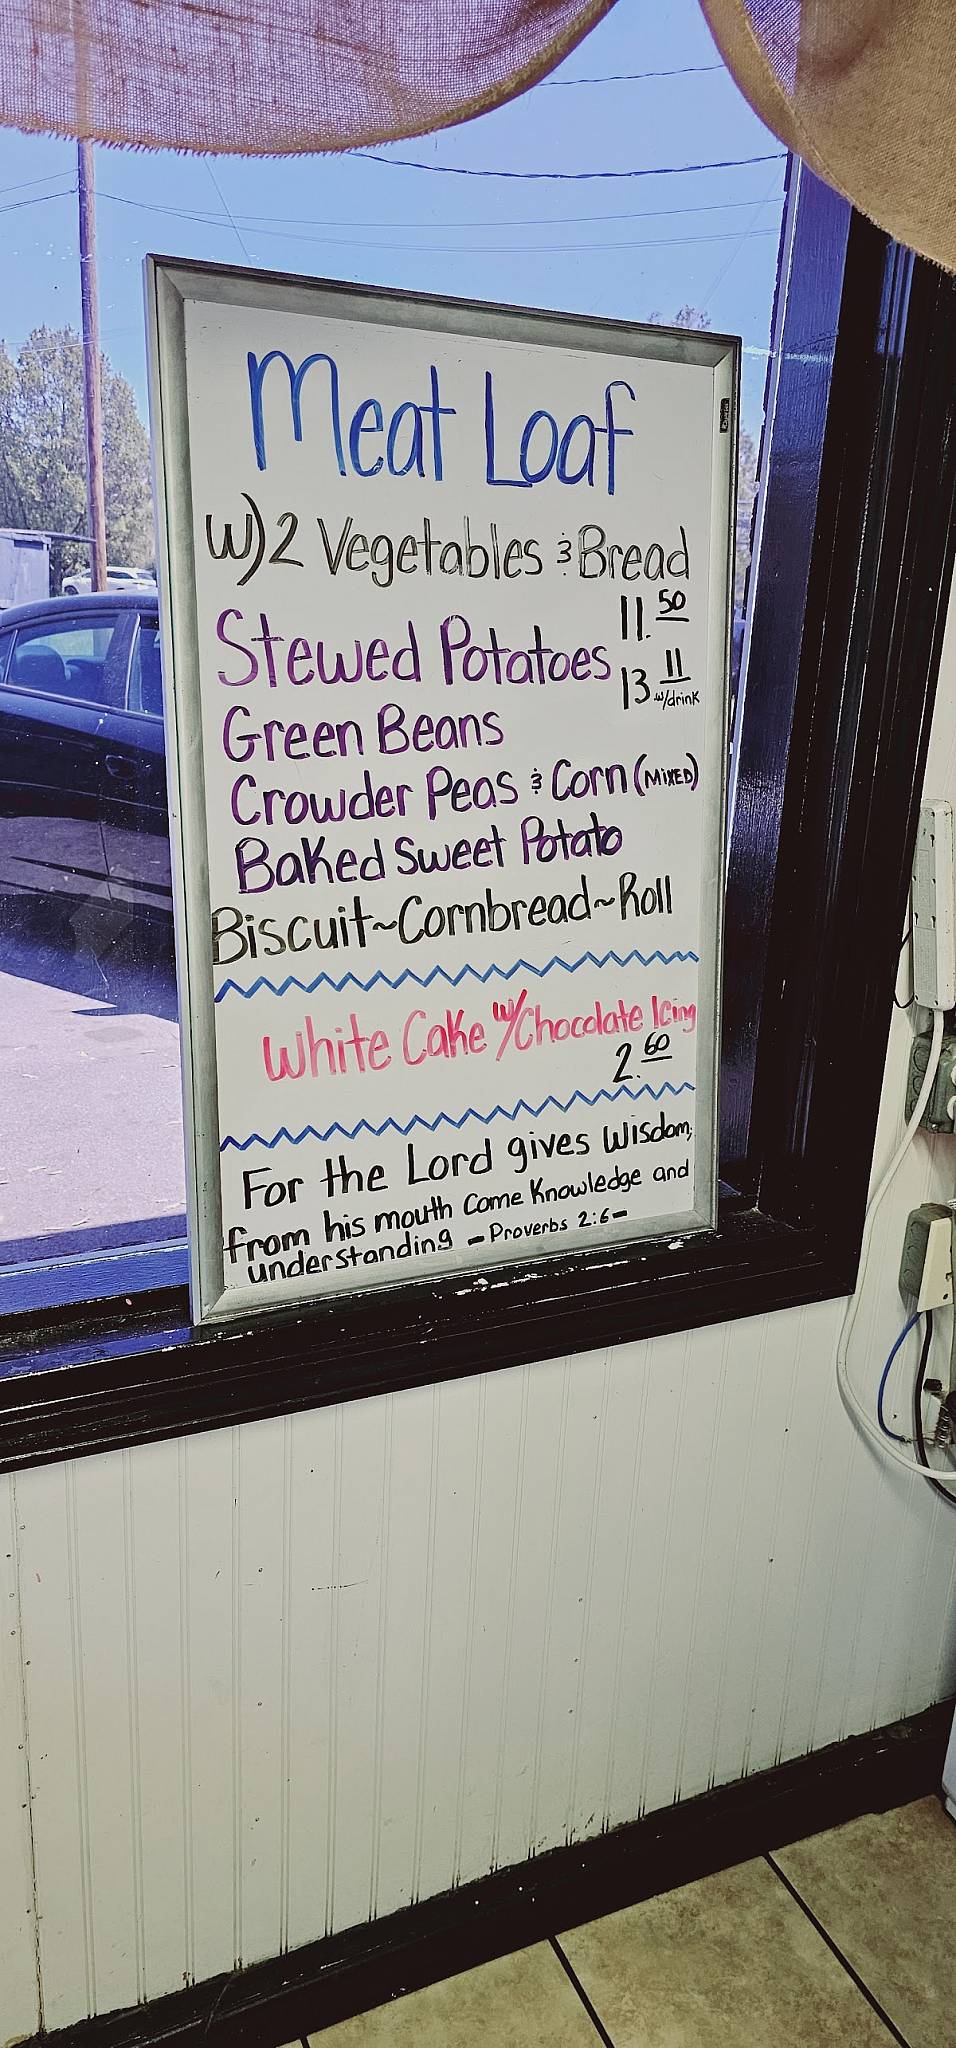 Meat Loaf
w) 2 Vegetables & Bread
11.50
Stewed Potatoes
13 11
w/drink
Green Beans
Crowder Peas & Corn (MIXED)
Baked Sweet Potato
Biscuit~Cornbread~Roll
White Cake w/Chocolate Icing
2.60
For the Lord gives wisdom;
from his mouth come knowledge and
understanding - Proverbs 2:6 -